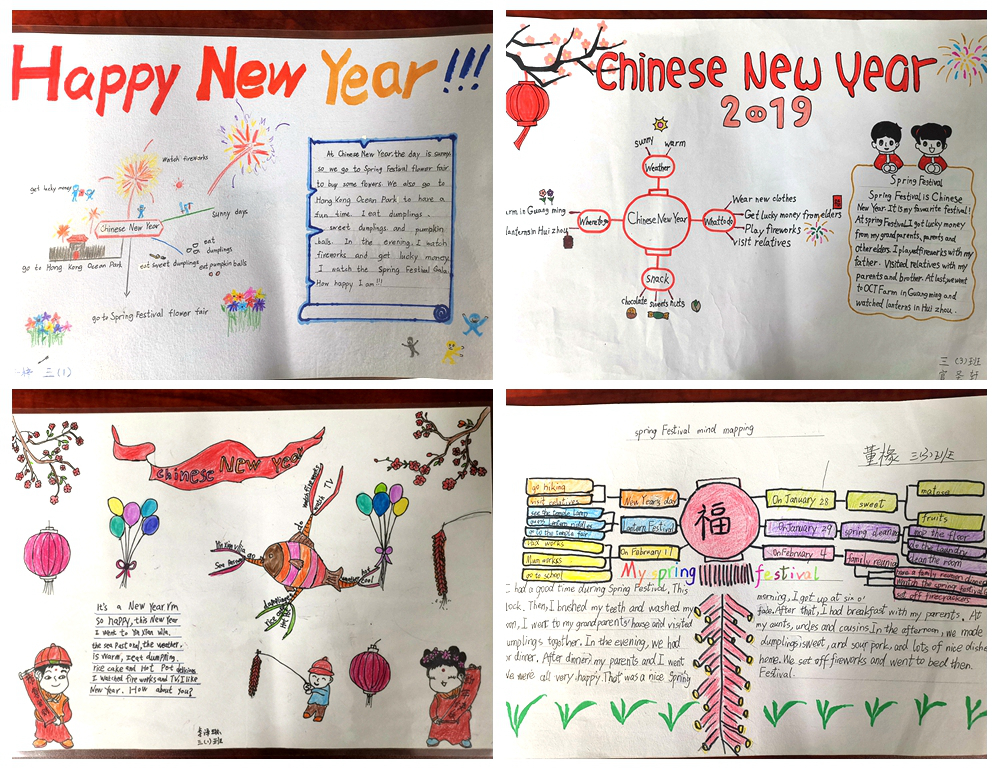 Happy New Year!!!
Watch fireworks
get lucky money
Sunny days
Chinese New Year
eat
dumplings
go to Hong Kong Ocean Park
eat sweet dumplings
eat pumpkin balls
go to Spring Festival flower fair
At Chinese New Year, the day is sunny,
so we go to Spring Festival flower fair
to buy some flowers. We also go to
Hong Kong Ocean Park to have a
fun time. I eat dumplings
sweet dumplings and pumpkin
balls. In the evening, I watch
fireworks and get lucky money.
I watch the Spring Festival Gala.
How happy I am!!!
三(1)
Chinese New Year
2019
sunny warm
Weather
Where to go
Chinese New Year
What to do
Wear new clothes
Get lucky money from elders
Play fireworks
visit relatives
arm in Guang ming
lanterns in Hui zhou
snack
chocolate sweets nuts
Spring Festival
Spring Festival is Chinese
New Year. It is my favorite festival!
At spring Festival I got lucky money
from my grandparents, parents and
other elders. I played fireworks with my
father. Visited relatives with my
parents and brother. At last, we went
to OCT Farm in Guang ming and
watched lanterns in Hui zhou.
三(3)班
Chinese New Year
watch fireworks
watch TV
It's a New Year I'm
So happy, this New Year
I went to Ya Xian villa.
the sea Pastoral, the weather
is warm, I eat dumpling.
rice cake and Hot Pot delicious
I watched fire works and TV. I like
New Year. How about you?
三(1)班
spring Festival mind mapping
董椽 三(3)班
go hiking
visit relatives
see the temple Lantern
guess Lantern riddles
go to the temple fair
go to school
New Year's day
Lantern Festival
On February 11
福
On January 28
On January 29
On February 4
sweet
spring cleaning
family reunion
fruits
mop the floor
do the laundry
clean the room
set off firecrackers
My spring festival
I had a good time during Spring Festival. This
morning, I got up at six o'
lock. Then, I brushed my teeth and washed my
face. After that, I had breakfast with my parents. At
on, I went to my grandparents' house and visited
my aunts, uncles and cousins. In the afternoon, we made
umplings together. In the evening, we had
dumplings, sweet, and sour pork, and lots of nice dishe
or dinner. After dinner, my parents and I went
home. We set off fireworks and went to bed then.
We were all very happy. That was a nice Spring
Festival.